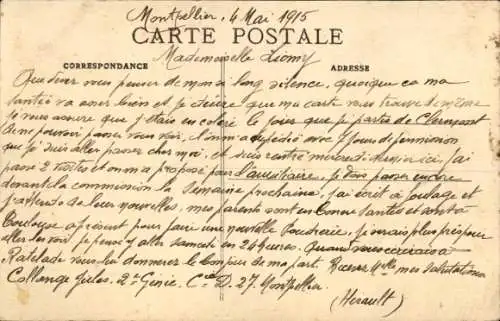 Montpellier, 4 Mai 1915
CARTE POSTALE
Mademoiselle
CORRESPONDANCE
ADRESSE
Que devez vous penser de mon si long silence, quoique ca ma
santée va assez bien et je désire que ma carte vous trouve de même
je vous assure que j'étais en colère le jour que je partis de Clermont
de ne pouvoir passer vous voir, on m'a expédié avec 7 jours de permission
que je suis aller passer chez moi, et suis rentré mercredi dernier ici, j'ai
passé 2 visites et on m'a proposé pour l'auxiliaire, je dois passer encore
devant la commission la semaine prochaine, j'ai écrit à
j'attends de leur nouvelles, mes parents sont en bonne santée et sont à
Toulouse a présent pour faire une nouvelle Poudrerie, je serais plus près pour
aller les voir je peux y aller samedi en 24 heures. Quand vous
vous leur donnerez le bonjour de ma part. Recevez Mlle mes salutations
Collange Jules. 2e Génie. Cie D. 27. Montpellier
(Herault)